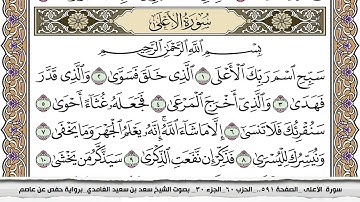 سُورَةُ الأَعْلَى
بِسْمِ اللَّهِ الرَّحْمَٰنِ الرَّحِيمِ
سَبِّحِ اسْمَ رَبِّكَ الْأَعْلَى ١ الَّذِي خَلَقَ فَسَوَّىٰ ٢ وَالَّذِي قَدَّرَ
فَهَدَىٰ ٣ وَالَّذِي أَخْرَجَ الْمَرْعَىٰ ٤ فَجَعَلَهُ غُثَاءً أَحْوَىٰ ٥
سَنُقْرِئُكَ فَلَا تَنسَىٰ ٦ إِلَّا مَا شَاءَ اللَّهُ ۚ إِنَّهُ يَعْلَمُ الْجَهْرَ وَمَا يَخْفَىٰ ٧
وَنُيَسِّرُكَ لِلْيُسْرَىٰ ٨ فَذَكِّرْ إِن نَّفَعَتِ الذِّكْرَىٰ ٩ سَيَذَّكَّرُ مَن يَخْشَىٰ ١٠
سورة الأعلى _الصفحة ٥٩١_ الحزب ٦٠_الجزء ٣٠_ بصوت الشيخ سعد بن سعيد الغامدي _برواية حفص عن عاصم